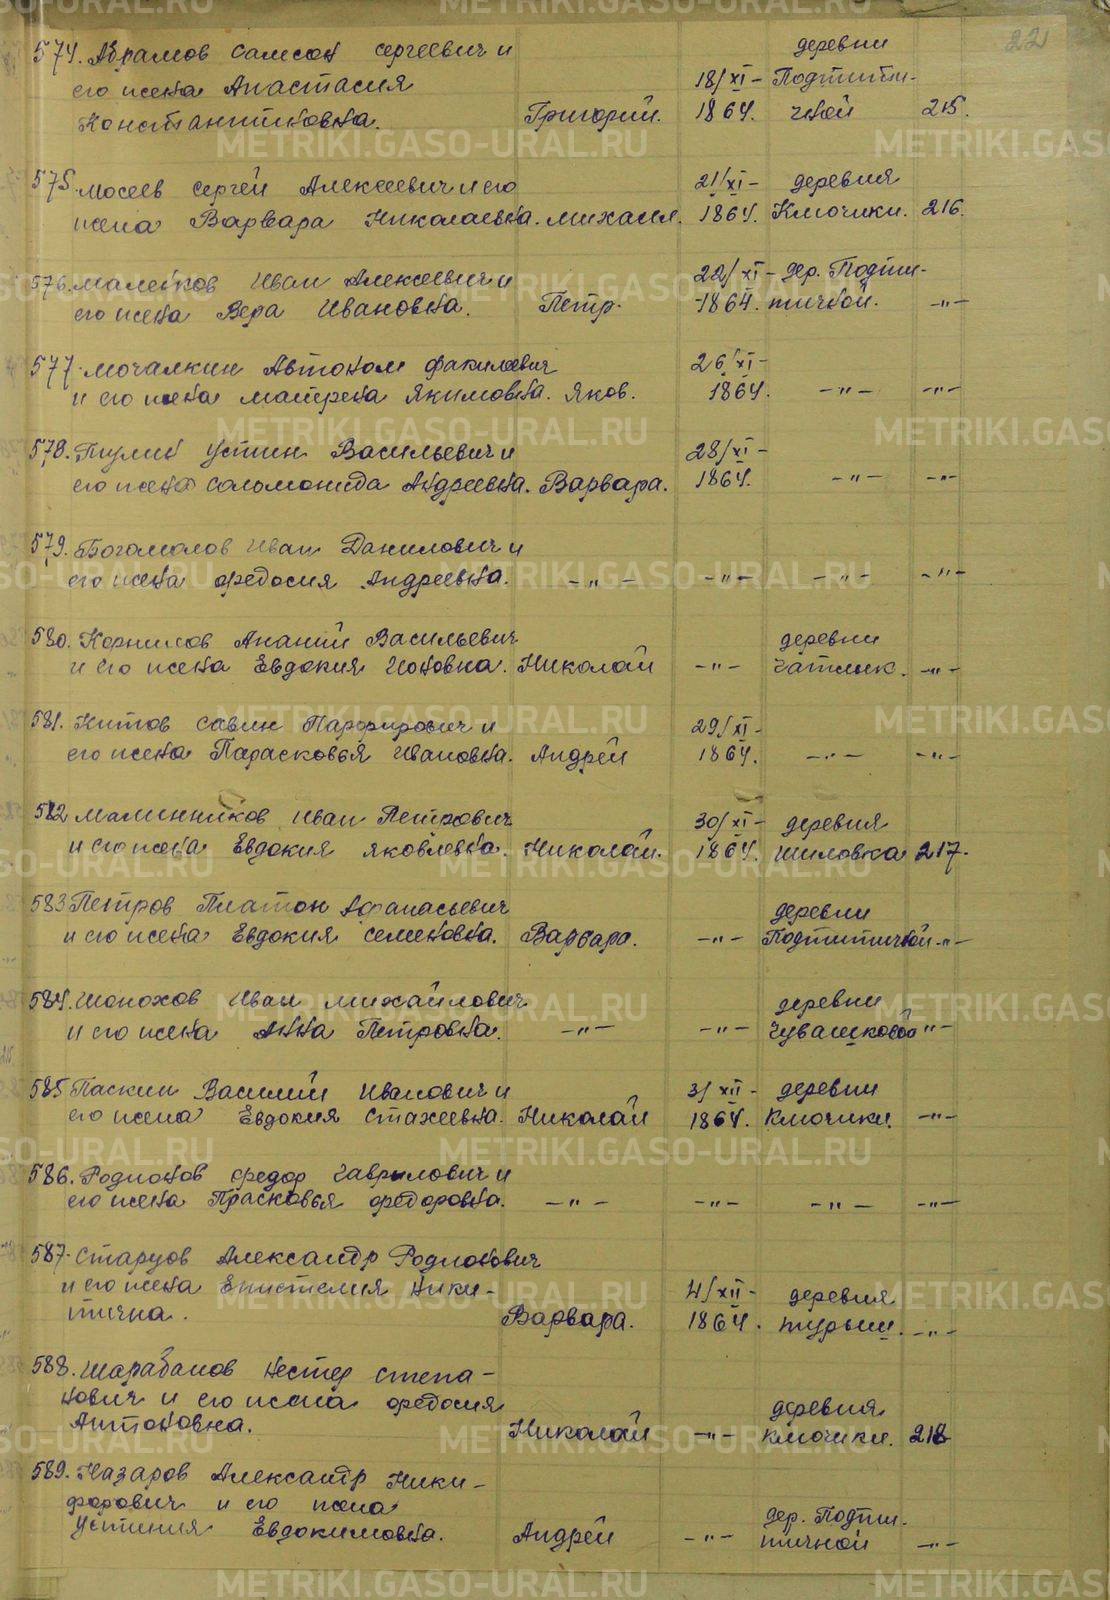 22
деревни
574. Абрамов Самсон Сергеевич и
его жена Анастасия 18/XI- Подтипи-
Константиновна. Григорий. 1864. чной 215.
575. Мосеев Сергей Алексеевич и его 21/XI- деревня
жена Варвара Николаевна. Михаил. 1864. Ключики. 216.
576. Малейков Иван Алексеевич и 22/XI- дер. Подти-
его жена Вера Ивановна. Петр. -1864. пичной. -"-
577. Мочалкин Автоном 26/XI-
и его жена Матрена Якимовна. Яков. 1864. -"- -"-
578. Тулин Устин Васильевич и 28/XI-
его жена Соломонида Андреевна. Варвара. 1864. -"- -"-
579. Богомолов Иван Данилович и
его жена Федосия Андреевна. -"- -"- -"- -"-
580. Корнилов Ананий Васильевич деревни
и его жена Евдокия Ионовна. Николай -"- Чатлык. -"-
581. Китов Савин Парфирович и 29/XI-
его жена Парасковья Ивановна. Андрей 1864. -"- -"-
582 Малинников Иван Петрович 30/XI- деревня
и его жена Евдокия Яковлевна. Николай. 1864. Шиловка 217.
583 Петров Платон Афанасьевич деревни
и его жена Евдокия Семеновна. Варвара. -"- Подтипичной -"-
584. Шонохов Иван Михайлович деревни
и его жена Анна Петровна. -"- -"- Чувашковой -"-
585 Паскин Василий Иванович и 3/XII- деревни
его жена Евдокия Стахеевна. Николай 1864. Ключики. -"-
586. Родионов Федор Гаврилович и
его жена Прасковья Федоровна. -"- -"- -"- -"-
587. Старцов Александр Родионович
и его жена Епистелия Ники- 4/XII- деревня
тична. Варвара. 1864. Турыш. -"-
588. Шарабанов Нестер Степа-
нович и его жена Федосия деревня
Антоновна. Николай -"- Ключики. 218
589. Назаров Александр Ники-
форович и его жена дер. Подти-
Устиния Евдокимовна. Андрей -"- пичной -"-
METRIKI.GASO-URAL.RU